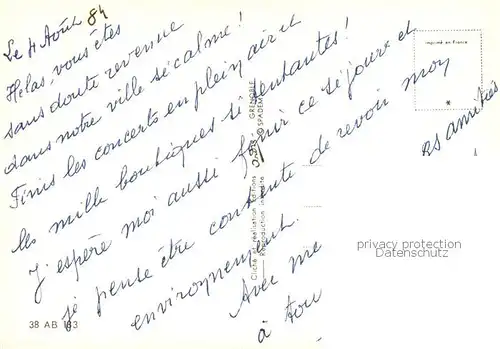 Le 4 Août 84
Helas, vous êtes
sans doute revenue
dans notre ville si calme !
Finis les concerts en plein air et
les mille boutiques si tentantes !
J'espère moi aussi finir ce séjour et
je pense être contente de revoir moy
environnement.
Avec me
es amitiés
à tou
imprimé en France
GRENOBLE
© SPADEM
Cliché et réalisation Editions
Reproduction interdite
privacy protection
Datenschutz
38 AB 183